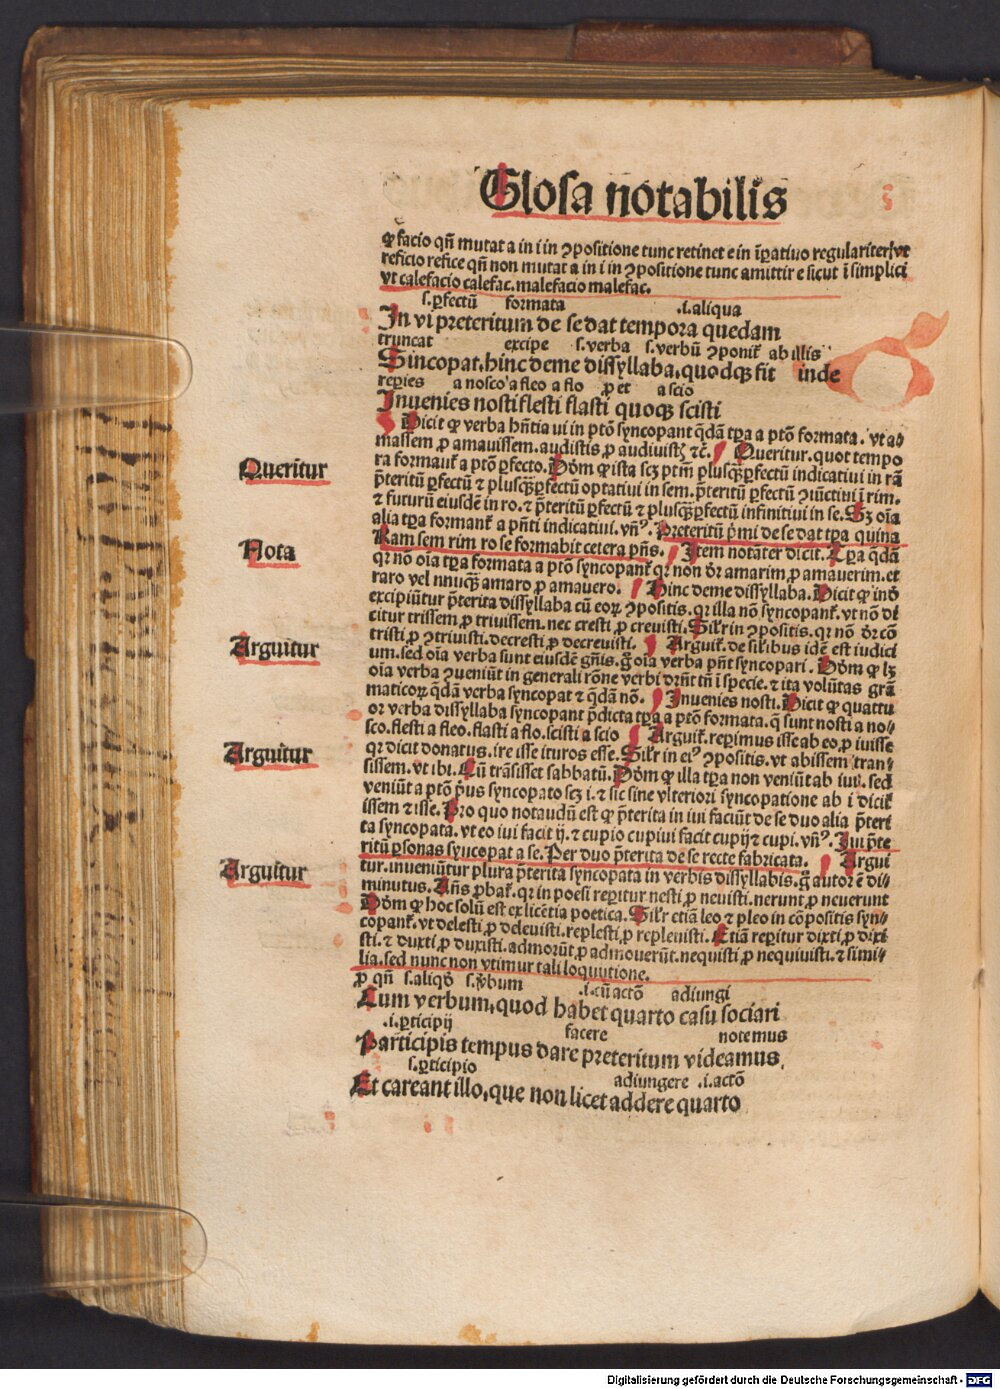 Glosa notabilis
ꝙ facio qñ mutat a in i in ꝯpositione tunc retinet e in īꝑatiuo regulariter / vt
reficio refice qñ non mutat a in i in ꝯpositione tunc amittit e sicut ī simplici
vt calefacio calefac. malefacio malefac.
s. ꝑfectū formata .i. aliqua
In vi preteritum de se dat tempora quedam
truncat excipe s. verba s. verbū ꝯponit᷑ ab illis
Sincopat. hinc deme dissyllaba, quodqꝫ fit inde
reꝑies a nosco a fleo a flo ꝓ et a scio
Inuenies nosti flesti flasti quoqꝫ scisti
Dicit ꝙ verba hñtia ui in ptō syncopant q̄dā tꝑa a ptō formata. vt a-
massem ꝓ amauissem. audistis ꝓ audiuistꝭ ⁊c̄. Queritur. quot tempo
Queritur
ra formant᷑ a ptō ꝑfecto. Dōm ꝙ ista scꝫ ptm̄ plusqꝫꝑfectū indicatiui in rā
p̄teritū ꝑfectū ⁊ plusqꝫꝑfectū optatiui in sem. p̄teritū ꝑfectū ꝯiūctiui ī rim.
⁊ futurū eiusdē in ro. ⁊ p̄teritū ꝑfectū ⁊ plusqꝫꝑfectū infinitiui in se. Sꝫ oīa
alia tꝑa formant᷑ a pñti indicatiui. vñꝰ. Preteritū p̄mi de se dat tꝑa quina
Nota
Ram sem rim ro se formabit cetera pñs. Item notāter dicit. Tꝑa q̄dā
qꝛ nō oīa tꝑa formata a ptō syncopant᷑ qꝛ non dꝛ amarim ꝓ amauerim. et
raro vel nnuqꝫ amaro ꝓ amauero. Hinc deme dissyllaba. Dicit ꝙ inō
excipiūtur p̄terita dissyllaba cū eoꝝ ꝯpositis. qꝛ illa nō syncopant᷑. vt nō di
citur trissem ꝓ triuissem. nec cresti ꝓ creuisti. Silꝛ in ꝯpositis. qꝛ nō dꝛ cō
Arguitur
tristi ꝓ ꝯtriuisti. decresti ꝓ decreuisti. Arguit᷑. de sil̄ibus idē est iudici
um. sed oīa verba sunt eiusdē gñis. g̊ oīa verba pñt syncopari. Dōm ꝙ lꝫ
oīa verba ꝯueniūt in generali rōne verbi dr̄nt tñ ī specie. ⁊ ita volūtas grā
maticoꝝ q̄dā verba syncopat ⁊ q̄dā nō. Inuenies nosti. Dicit ꝙ quattu
or verba dissyllaba syncopant p̄dicta tꝑa a ptō formata. q̄ sunt nosti a no-
sco. flesti a fleo. flasti a flo. scisti a scio Arguit᷑. reꝑimus isse ab eo, ꝓ iuisse
Arguitur
qꝛ dicit donatus. ire isse ituros esse. Silꝛ in eiꝰ ꝯpositis. vt abissem tran-
sissem. vt ibi. Cū trāsisset sabbatū. Dōm ꝙ illa tꝑa non veniūt ab iui. sed
veniūt a ptō p̄us syncopato scꝫ i. ⁊ sic sine vlteriori syncopatione ab i dicit᷑
issem ⁊ isse. Pro quo notandū est ꝙ p̄terita in iui faciūt de se duo alia p̄teri
ta syncopata. vt eo iui facit ij. ⁊ cupio cupiui facit cupij ⁊ cupi. vñꝰ. Iui p̄te
ritū ꝑsonas syncopat a se. Per duo p̄terita de se recte fabricata. Argui
Arguitur
tur. inueniūtur plura p̄terita syncopata in verbis dissyllabis. g̊ autor ē di-
minutus. Añs ꝓbat᷑. qꝛ in poesi reꝑitur nesti ꝓ neuisti. nerunt ꝓ neuerunt
Dōm ꝙ hoc solū est ex licētia poetica. Silꝛ etiā leo ⁊ pleo in cōpositis syn-
copant᷑. vt delesti ꝓ deleuisti. replesti ꝓ repleuisti. Etiā reꝑitur dixti ꝓ dixi
sti. ⁊ duxti ꝓ duxisti. admorūt ꝓ admouerūt. nequisti ꝓ nequiuisti. ⁊ simi-
lia. sed nunc non vtimur tali loquutione.
ꝓ qñ s. aliqd̄ s. v̄bum .i. cū actō adiungi
Cum verbum, quod habet quarto casu sociari
.i. ꝑticipij facere notemus
Participis tempus dare preteritum videamus,
s. ꝑticipio adiungere .i. actō
Et careant illo, que non licet addere quarto
Digitalisierung gefördert durch die Deutsche Forschungsgemeinschaft - DFG